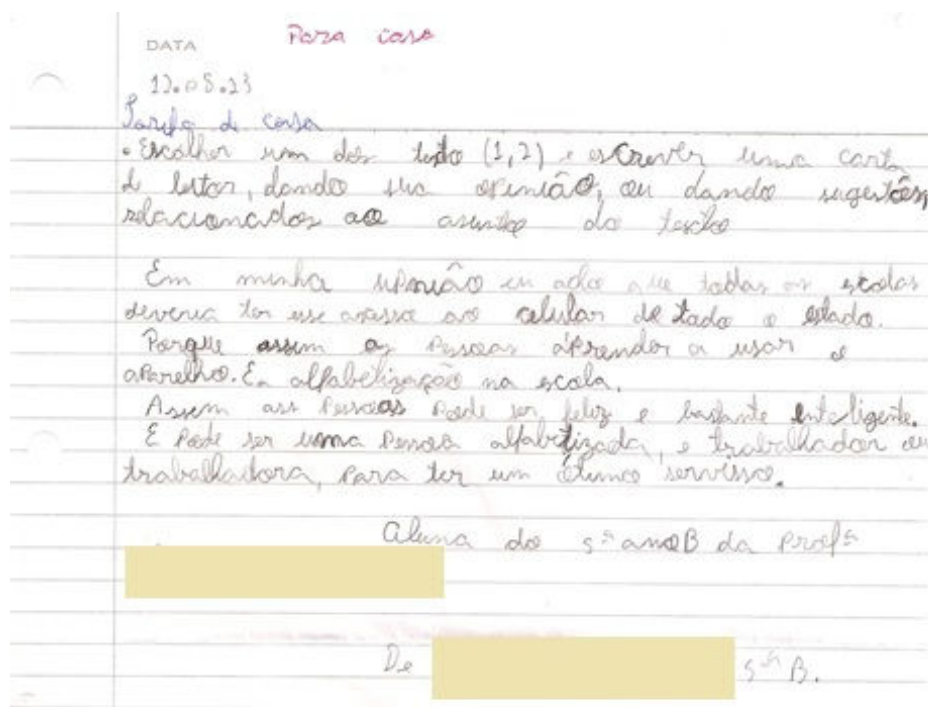 DATA Para casa
12.05.23
Tarefa de casa
• Escolher um dos texto (1,2) e escrever uma carta
de leitor, dando sua opinião, ou dando sugestões,
relacionados ao assunto do texto
Em minha opinião eu acho que todas as escolas
deveria ter esse acesso ao celular de todo o estado.
Porque assim as pessoas aprender a usar o
aparelho. E a alfabetização na escola.
Assim as pessoas pode ser feliz e bastante inteligente.
E pode ser uma pessoa alfabetizada, e trabalhador ou
trabalhadora, para ter um ótimo servisso.
Aluna do 5º ano B da profª
De 5º B.